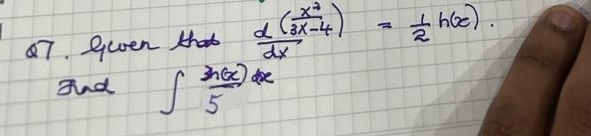 Q7. Given that d(x²/3x-4)/dx = 1/2 h(x).
Find ∫ 3h(x)/5 dx